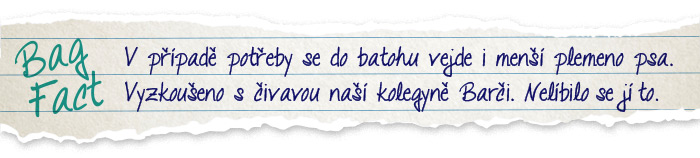 Bag
Fact
V případě potřeby se do batohu vejde i menší plemeno psa.
Vyzkoušeno s čivavou naší kolegyně Barči. Nelíbilo se jí to.